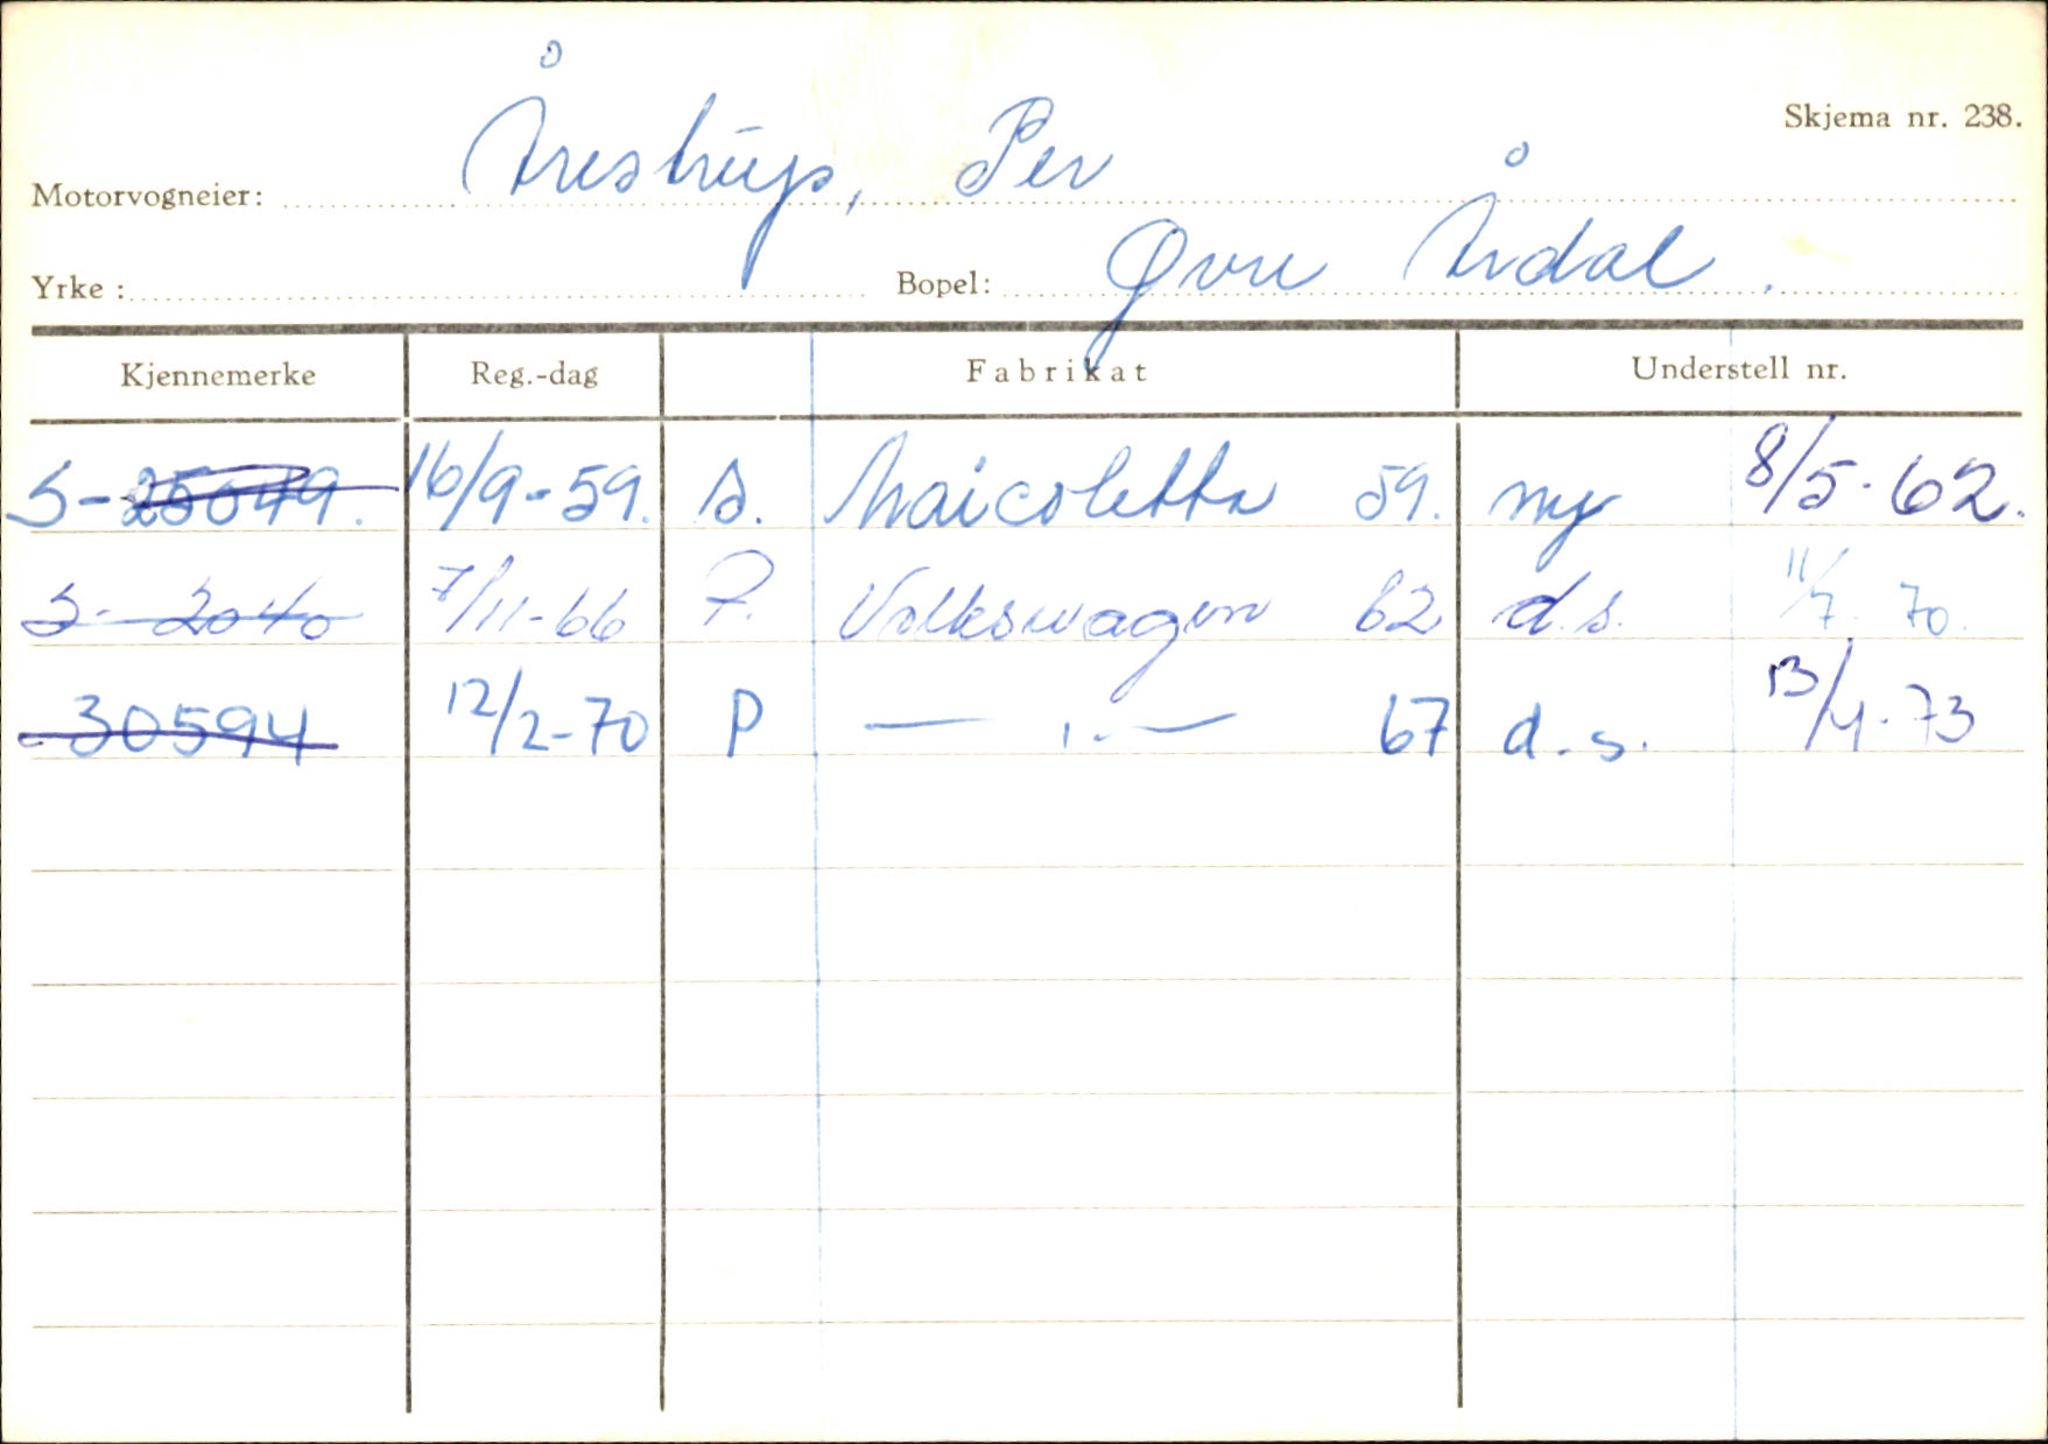 Skjema nr. 238.
Motorvogneier: Årestrup, Per
Yrke: Bopel: Øvre Årdal.
Kjennemerke Reg.-dag Fabrikat Understell nr.
S-25049. 16/9-59. S. Maicoletta 59. ny 8/5-62.
S- 2040 7/11-66 P. Volkswagen 62 d.s. 11/7 70.
30594 12/2-70 P — " — 67 d.s. 13/4-73